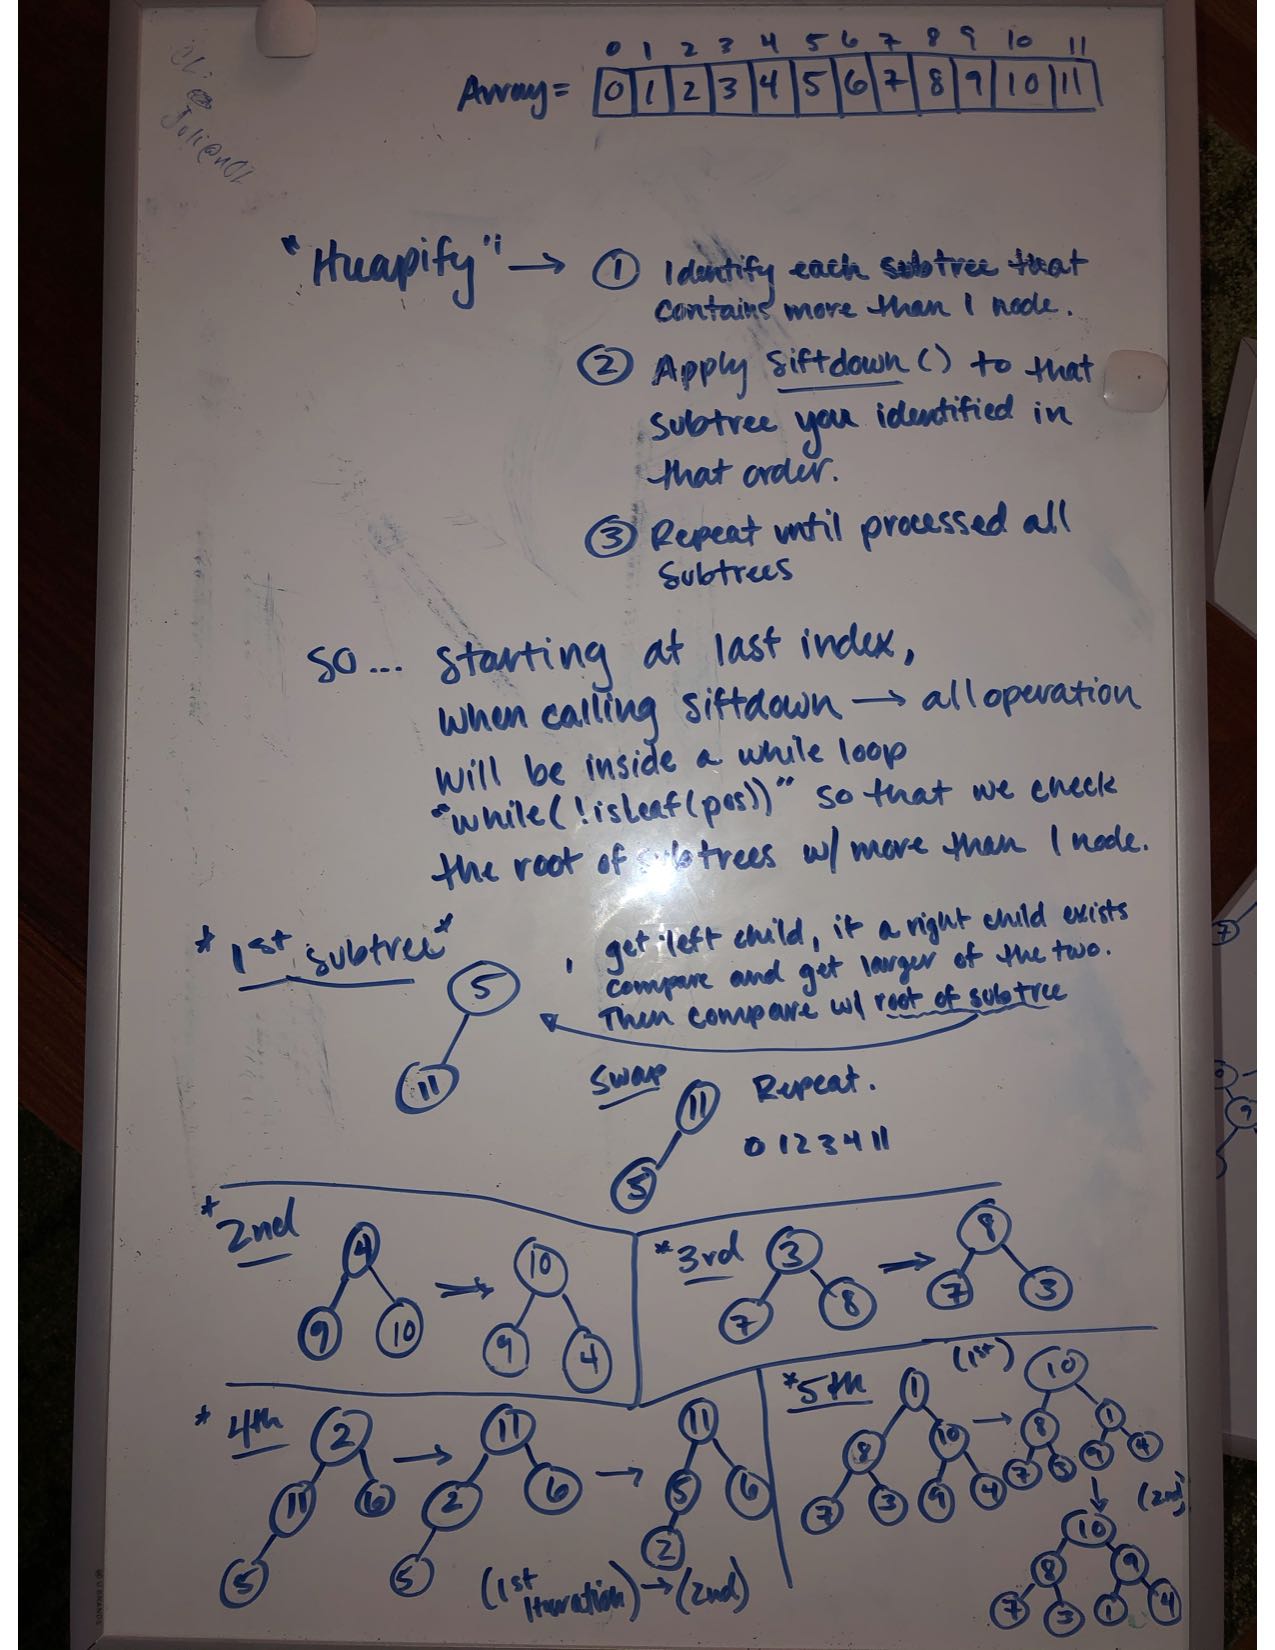 0 1 2 3 4 5 6 7 8 9 10 11
Array = 0 1 2 3 4 5 6 7 8 9 10 11
"Heapify": → ① Identify each subtree that
contains more than 1 node.
② Apply siftdown() to that
subtree you identified in
that order.
③ Repeat until processed all
subtrees
SO... starting at last index,
when calling siftdown → all operation
will be inside a while loop
"while(!isLeaf(pos))" so that we check
the root of subtrees w/ more than 1 node.
*1st subtree*
, get left child, if a right child exists
compare and get larger of the two.
Then compare w/ root of subtree
5
11
Swap
11
5
Repeat.
0 1 2 3 4 11
*2nd
4
9 10
→
10
9 4
*3rd
3
7 8
→
8
7 3
*4th
2
11 6
5
→
11
2 6
5
→
11
5 6
2
(1st
Iteration) → (2nd)
*5th
1
8 10
7 3 9 4
→
(1st)
10
8 1
7 3 9 4
↓
(2nd)
10
8 9
7 3 1 4